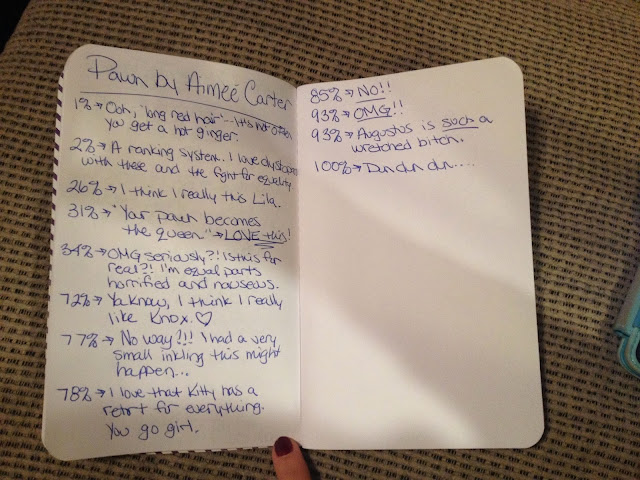 Pawn by Aimée Carter
1% → Ooh, "long red hair"... It's not often
you get a hot ginger.
2% → A ranking system. I love dystopians
with these and the fight for equality.
26% → I think I really this Lila.
31% → "Your pawn becomes
the queen" → LOVE this!
34% → OMG seriously?! Is this for
real?! I'm equal parts
horrified and nauseous.
72% → Ya know, I think I really
like Knox. ♡
77% → No way?!!! I had a very
small inkling this might
happen...
78% → I love that Kitty has a
retort for everything.
You go girl.
85% → NO!!
93% → OMG!!
93% → Augustus is such a
wretched
100% → Dun dun dun....